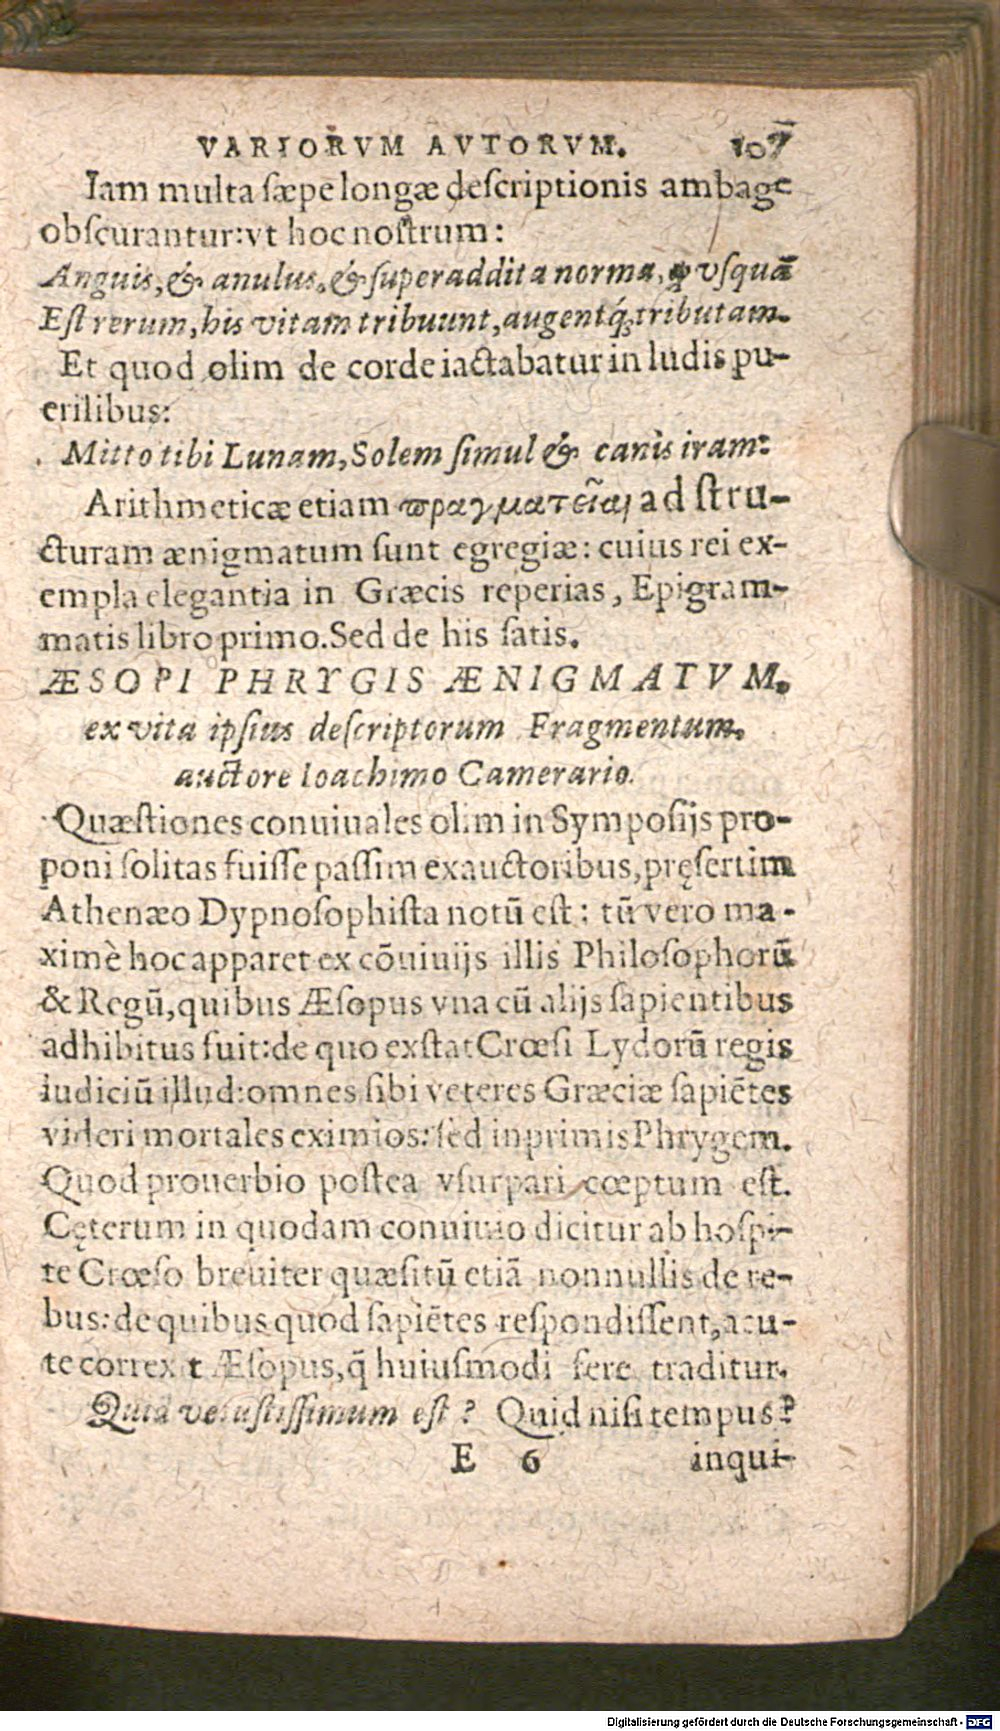 VARIORVM AVTORVM. 107
Iam multa sæpe longæ descriptionis ambage
obscurantur: vt hoc nostrum:
Anguis, & anulus, & superaddita norma, qđ vsquā
Est rerum, his vitam tribuunt, augentq́; tributam.
Et quod olim de corde iactabatur in ludis pu-
erilibus:
Mitto tibi Lunam, Solem simul & canis iram:
Arithmeticæ etiam πραγματεῖαι ad stru-
cturam ænigmatum sunt egregiæ: cuius rei ex-
empla elegantia in Græcis reperias, Epigram-
matis libro primo. Sed de his satis.
ÆSOPI PHRYGIS ÆNIGMATVM,
ex vita ipsius descriptorum Fragmentum,
auctore Ioachimo Camerario.
Quæstiones conuiuales olim in Symposijs pro-
poni solitas fuisse passim ex auctoribus, pręsertim
Athenæo Dypnosophista notū est: tū vero ma-
ximè hoc apparet ex cōuiuijs illis Philosophorū
& Regū, quibus Æsopus vna cū alijs sapientibus
adhibitus fuit: de quo exstat Crœsi Lydorū regis
iudiciū illud: omnes sibi veteres Græciæ sapiētes
videri mortales eximios: sed inprimis Phrygem.
Quod prouerbio postea vsurpari cœptum est.
Cęterum in quodam conuiuio dicitur ab hospi-
te Crœso breuiter quæsitū etiā nonnullis de re-
bus: de quibus quod sapiētes respondissent, acu-
te correxit Æsopus, q̄ huiusmodi fere traditur.
Quid vetustissimum est? Quid nisi tempus?
E 6 inqui-
Digitalisierung gefördert durch die Deutsche Forschungsgemeinschaft - DFG